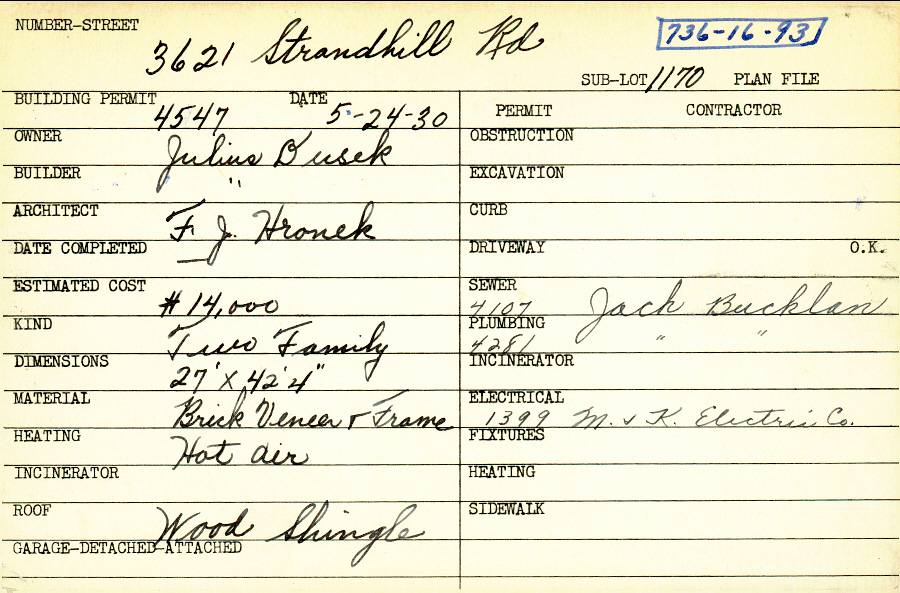 NUMBER-STREET
3621 Strandhill Rd
736-16-93
SUB-LOT 1170 PLAN FILE
BUILDING PERMIT 4547 DATE 5-24-30
PERMIT CONTRACTOR
OWNER Julius Busek
OBSTRUCTION
BUILDER "
EXCAVATION
ARCHITECT F. J. Hronek
CURB
DATE COMPLETED —
DRIVEWAY O.K.
ESTIMATED COST $14,000
SEWER 4107 Jack Bucklan
KIND Two Family
PLUMBING 4281 " "
DIMENSIONS 27' X 42'4"
INCINERATOR
MATERIAL Brick Veneer & Frame
ELECTRICAL 1399 M. & K. Electric Co.
HEATING Hot air
FIXTURES
INCINERATOR
HEATING
ROOF Wood Shingle
SIDEWALK
GARAGE-DETACHED-ATTACHED